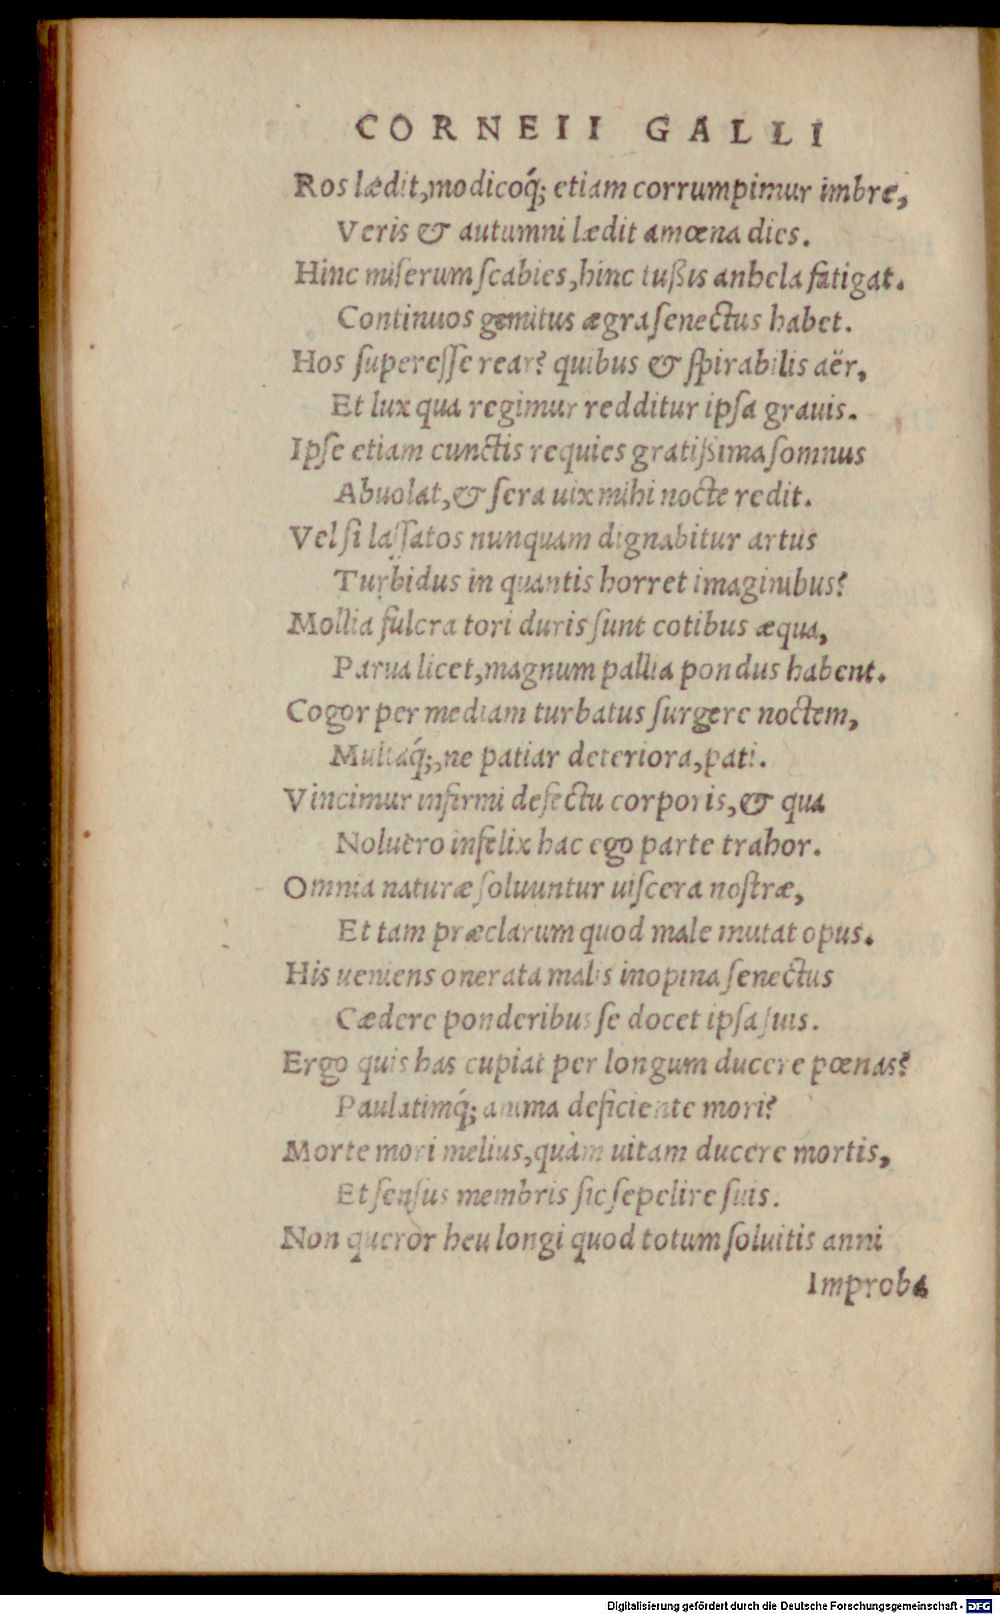 CORNEII GALLI
Ros lædit, modicoq́; etiam corrumpimur imbre,
Veris & autumni lædit amœna dies.
Hinc miserum scabies, hinc tußis anhela fatigat.
Continuos gemitus ægra senectus habet.
Hos superesse rear? quibus & spirabilis aër,
Et lux qua regimur redditur ipsa grauis.
Ipse etiam cunctis requies gratißima somnus
Abuolat, & sera uix mihi nocte redit.
Vel si lassatos nunquam dignabitur artus
Turbidus in quantis horret imaginibus?
Mollia fulcra tori duris sunt cotibus æqua,
Parua licet, magnum pallia pondus habent.
Cogor per mediam turbatus surgere noctem,
Multaq́;, ne patiar deteriora, pati.
Vincimur infirmi defectu corporis, & qua
Noluero infelix hac ego parte trahor.
Omnia naturæ soluuntur uiscera nostræ,
Et tam præclarum quod male mutat opus.
His ueniens onerata malis inopina senectus
Cædere ponderibus se docet ipsa suis.
Ergo quis has cupiat per longum ducere pœnas?
Paulatimq́; anima deficiente mori?
Morte mori melius, quàm uitam ducere mortis,
Et sensus membris sic sepelire suis.
Non queror heu longi quod totum soluitis anni
Improba
Digitalisierung gefördert durch die Deutsche Forschungsgemeinschaft - DFG